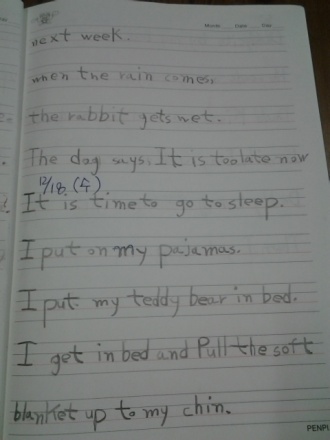 8
Month Date Day
next week.
when the rain comes,
the rabbit gets wet.
The dog says, It is too late now
12/18. (午)
It is time to go to sleep.
I put on my pajamas.
I put my teddy bear in bed.
I get in bed and Pull the soft
blanket up to my chin.